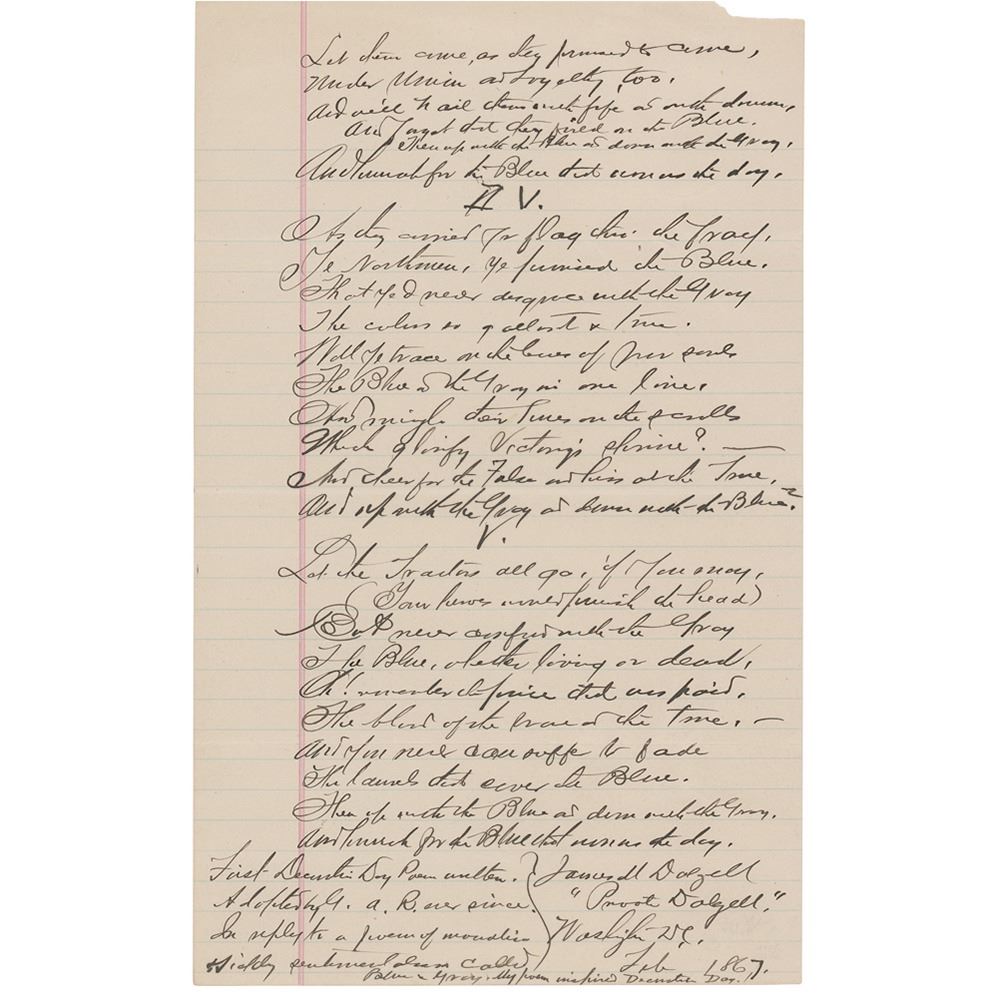 Let them come, as they promised to come,
Under Union and loyalty, too,
And we'll hail them with fife and with drum,
And forget that they fired on the Blue.
Then up with the Blue and down with the Gray,
And hurrah for the Blue that won us the day.
IV.
As they carried yr flag thro' the fray,
Ye Northmen, ye promised the Blue,
That ye'd never disgrace with the Gray
The colors so gallant & true.
Will ye trace on the leaves of your souls
The Blue and the Gray in one line,
And mingle their lines on the scrolls
Which glorify Victory's shrine? —
And cheer for the False and hiss at the True,
And up with the Gray and down with the Blue?
V.
Let the Traitors all go, if you may,
(Your heroes would punish the head)
But never confound with the Gray
The Blue, whether living or dead,
Oh! remember the price that was paid,
The blood of the brave and the true. —
And you never can suffer to fade
The laurels that cover the Blue.
Then up with the Blue and down with the Gray,
And hurrah for the Blue that won us the day.
First Decoration Day Poem written.
Adopted by G. A. R. ever since.
In reply to a poem of
Sickly sentimentalism called
Blue & Gray. My poem inspired Decoration Day.
James M Dalzell
"Private Dalzell,"
Washington D.C.
Feb 1867.